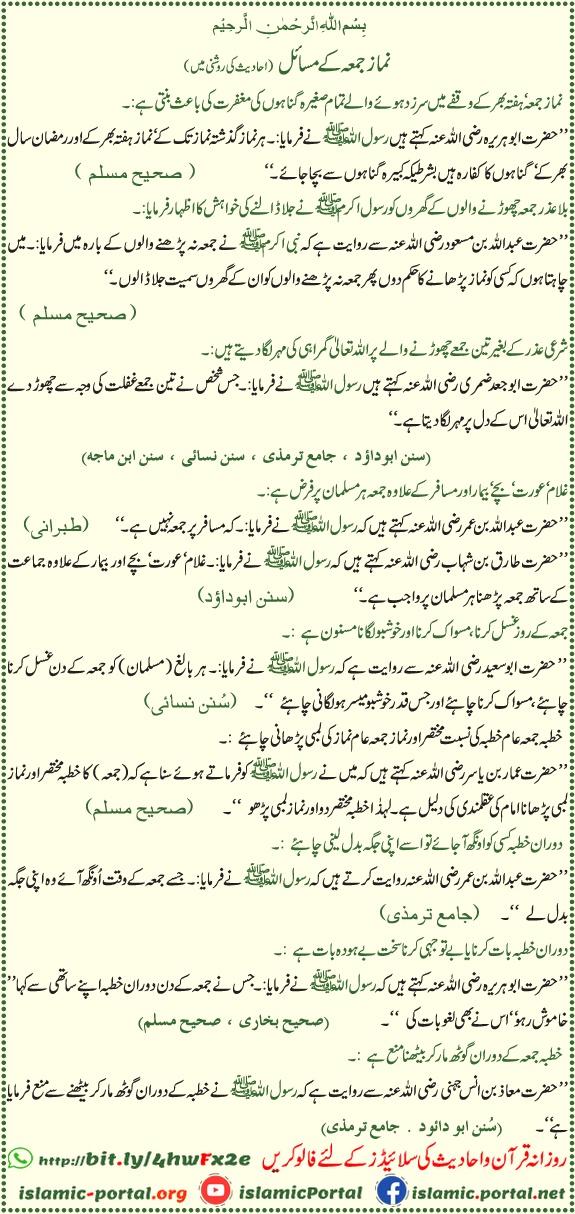 بِسْمِ اللهِ الرَّحْمٰنِ الرَّحِيْمِ
نماز جمعہ کے مسائل (احادیث کی روشنی میں)
نماز جمعہ‘ ہفتہ بھر کے وقفے میں سرزد ہوئے والے تمام صغیرہ گناہوں کی مغفرت کی باعث بنتی ہے:۔
’’حضرت ابو ہریرہ رضی اللہ عنہ کہتے ہیں رسول اللہ ﷺ نے فرمایا:۔ ہر نماز گذشتہ نماز تک کے‘ نماز ہفتہ بھر کے اور رمضان سال
بھر کے‘ گناہوں کا کفارہ ہیں بشرطیکہ کبیرہ گناہوں سے بچا جائے۔‘‘ ( صحیح مسلم )
بلا عذر جمعہ چھوڑنے والوں کے گھروں کو رسول اکرم ﷺ نے جلا ڈالنے کی خواہش کا اظہار فرمایا:۔
’’حضرت عبداللہ بن مسعود رضی اللہ عنہ سے روایت ہے کہ نبی اکرم ﷺ نے جمعہ نہ پڑھنے والوں کے بارہ میں فرمایا:۔ میں
چاہتا ہوں کہ کسی کو نماز پڑھانے کا حکم دوں پھر جمعہ نہ پڑھنے والوں کو ان کے گھروں سمیت جلا ڈالوں۔‘‘
( صحیح مسلم )
شرعی عذر کے بغیر تین جمعے چھوڑنے والے پر اللہ تعالیٰ گمراہی کی مہر لگا دیتے ہیں:۔
’’حضرت ابو جعد ضمری رضی اللہ عنہ کہتے ہیں رسول اللہ ﷺ نے فرمایا:۔ جس شخص نے تین جمعے غفلت کی وجہ سے چھوڑ دے
اللہ تعالیٰ اس کے دل پر مہر لگا دیتا ہے۔‘‘
(سنن ابوداؤد ، جامع ترمذی ، سنن نسائی ، سنن ابن ماجه)
غلام‘ عورت‘ بچے‘ بیمار اور مسافر کے علاوہ جمعہ ہر مسلمان پر فرض ہے:۔
’’حضرت عبداللہ بن عمر رضی اللہ عنہ کہتے ہیں کہ رسول اللہ ﷺ نے فرمایا:۔ کہ مسافر پر جمعہ نہیں ہے۔‘‘ (طبرانی)
’’حضرت طارق بن شہاب رضی اللہ عنہ کہتے ہیں کہ رسول اللہ ﷺ نے فرمایا:۔ غلام‘ عورت‘ بچے اور بیمار کے علاوہ جماعت
کے ساتھ جمعہ پڑھنا ہر مسلمان پر واجب ہے۔‘‘ (سنن ابوداؤد)
جمعہ کے روز غسل کرنا، مسواک کرنا اور خوشبو لگانا مسنون ہے :۔
’’حضرت ابو سعید رضی اللہ عنہ سے روایت ہے کہ رسول اللہ ﷺ نے فرمایا:۔ ہر بالغ (مسلمان) کو جمعہ کے دن غسل کرنا
چاہئے، مسواک کرنا چاہئے اور جس قدر خوشبو میسر ہو لگانی چاہئے ‘‘۔ (سُنن نسائی)
خطبہ جمعہ عام خطبہ کی نسبت مختصر اور نماز جمعہ عام نماز کی لمبی پڑھانی چاہئے :۔
’’حضرت عمار بن یاسر رضی اللہ عنہ کہتے ہیں کہ میں نے رسول اللہ ﷺ کو فرماتے ہوئے سنا ہے کہ (جمعہ ) کا خطبہ مختصر اور نماز
لمبی پڑھانا امام کی عقلمندی کی دلیل ہے۔ لہذا خطبہ مختصر دو اور نماز لمبی پڑھو ‘‘۔ (صحیح مسلم)
دوران خطبہ کسی کو اونگھ آ جائے تو اسے اپنی جگہ بدل لینی چاہئے :۔
’’حضرت عبداللہ بن عمر رضی اللہ عنہ روایت کرتے ہیں کہ رسول اللہ ﷺ نے فرمایا:۔ جسے جمعہ کے وقت اُونگھ آئے وہ اپنی جگہ
بدل لے ‘‘۔ (جامع ترمذی)
دوران خطبہ بات کرنا یا بے توجہی کرنا سخت بے ہودہ بات ہے :۔
’’حضرت ابو ہریرہ رضی اللہ عنہ کہتے ہیں کہ رسول اللہ ﷺ نے فرمایا:۔ جس نے جمعہ کے دن دوران خطبہ اپنے ساتھی سے کہا’’
خاموش رہو‘‘ اس نے بھی لغو بات کی ‘‘۔ (صحیح بخاری ، صحیح مسلم)
خطبہ جمعہ کے دوران گوٹھ مار کر بیٹھنا منع ہے :۔
’’حضرت معاذ بن انس جہنی رضی اللہ عنہ سے روایت ہے کہ رسول اللہ ﷺ نے خطبہ کے دوران گوٹھ مار کر بیٹھنے سے منع فرمایا
ہے‘‘۔ (سُنن ابو دائود . جامع ترمذی)
روزانہ قرآن و احادیث کی سلائیڈز کے لئے فالو کریں http://bit.ly/4hwFx2e
islamic-portal.org islamicPortal islamic.portal.net